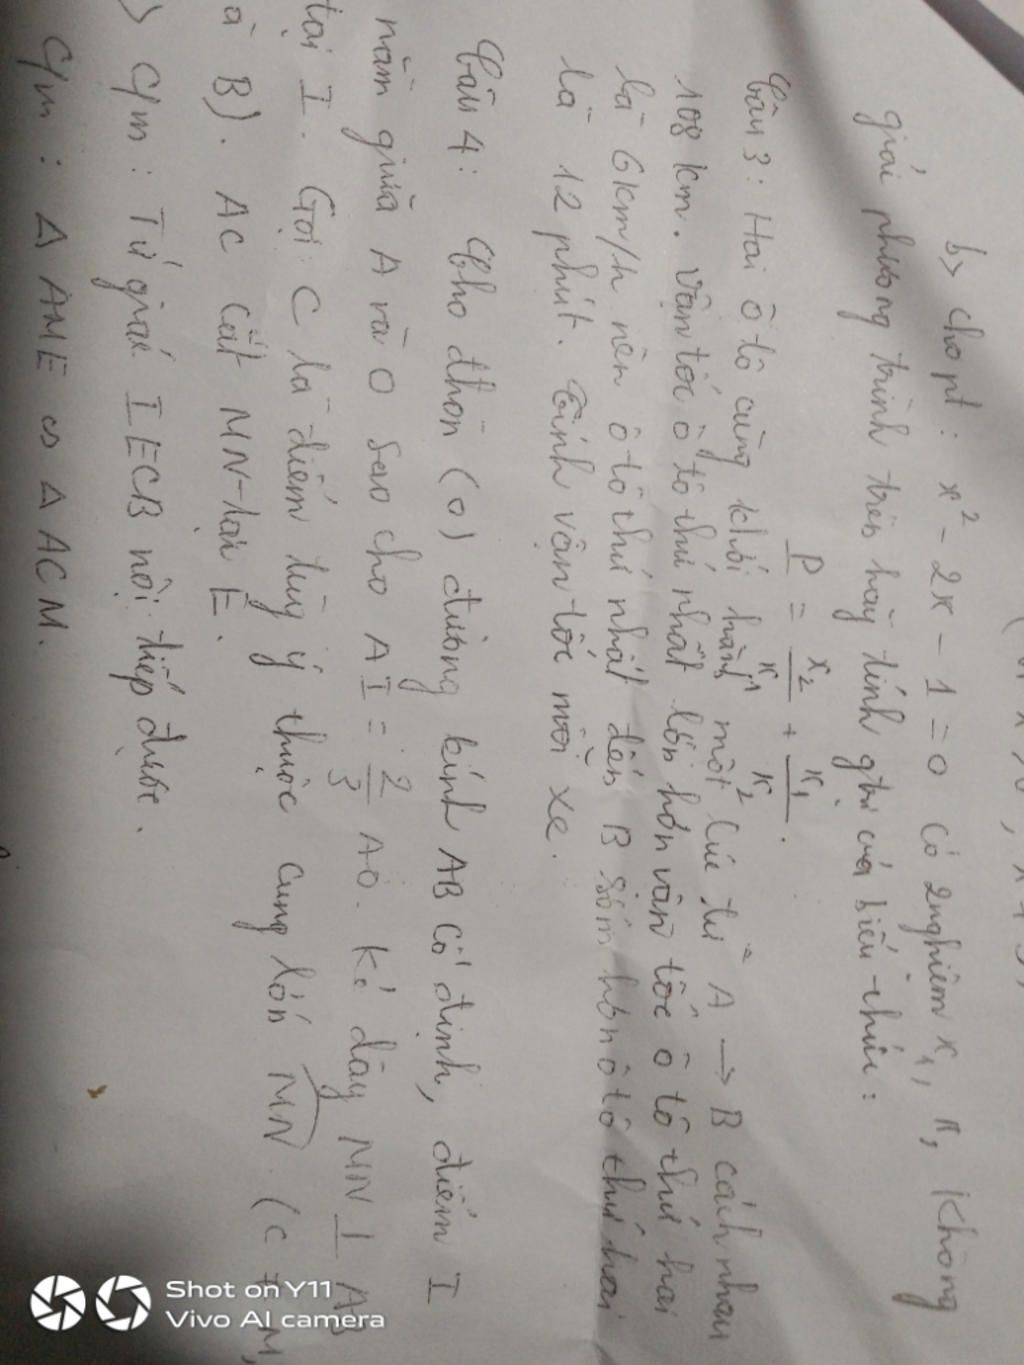 b> cho pt: x² - 2x - 1 = 0 có 2 nghiệm x₁, x, không
giải phương trình trên hãy tính gtrị của biểu thức:
P = x₂/x₁ + x₁/x₂.
Câu 3: Hai ô tô cùng khởi hành một lúc từ A → B cách nhau
108 km. Vận tốc ô tô thứ nhất lớn hơn vận tốc ô tô thứ hai
là 6km/h nên ô tô thứ nhất đến B sớm hơn ô tô thứ hai
là 12 phút. Tính vận tốc mỗi xe.
Câu 4: Cho đtròn (O) đường kính AB cố định, điểm I
nằm giữa A và O sao cho AI = 2/3 AO. Kẻ dây MN ⊥ AB
tại I. Gọi C là điểm tùy ý thuộc cung lớn MN (C ≠ M,
à B). AC cắt MN tại E.
> C/m: Tứ giác IECB nội tiếp được.
C/m: Δ AME ∽ Δ ACM.
Shot on Y11
Vivo AI camera